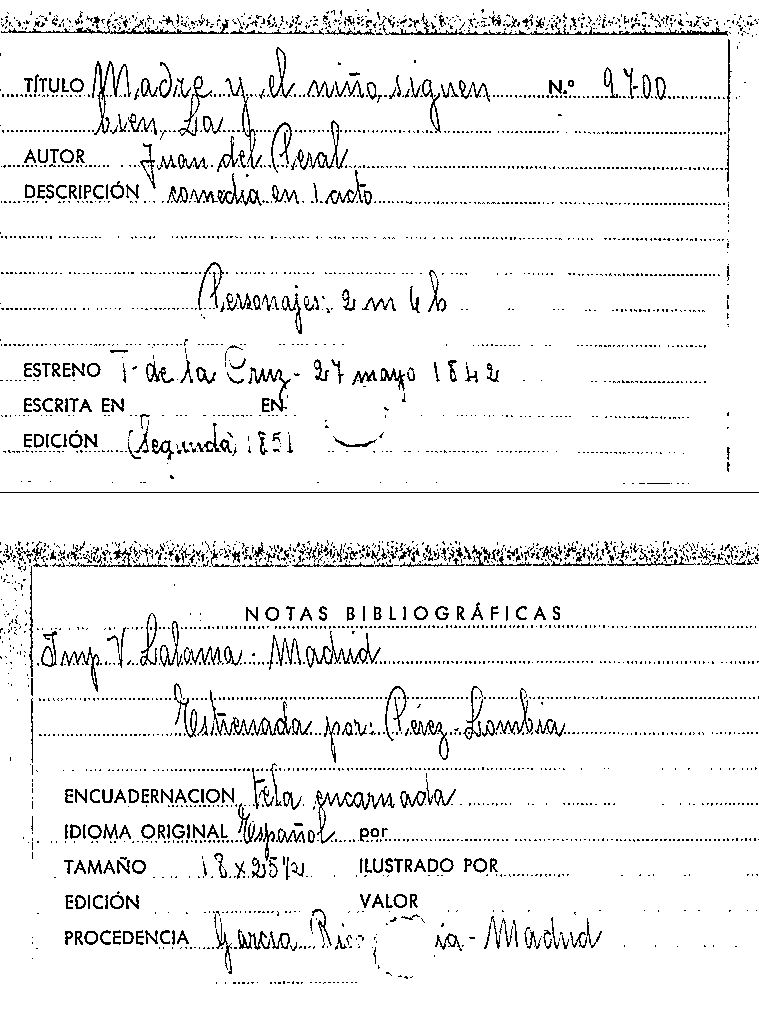 TÍTULO Madre y el niño siguen N.º 9700
bien, La
AUTOR Juan del Peral
DESCRIPCIÓN comedia en 1 acto
Personajes: 2 m 4 h
ESTRENO T. de la Cruz - 27 mayo 1842
ESCRITA EN EN
EDICIÓN (Segunda) 1851
NOTAS BIBLIOGRÁFICAS
Imp V. Lalama - Madrid
Estrenada por: Pérez - Lombia
ENCUADERNACION tela encarnada
IDIOMA ORIGINAL Español por
TAMAÑO 18 x 25 1/2 ILUSTRADO POR
EDICIÓN VALOR
PROCEDENCIA García - Madrid